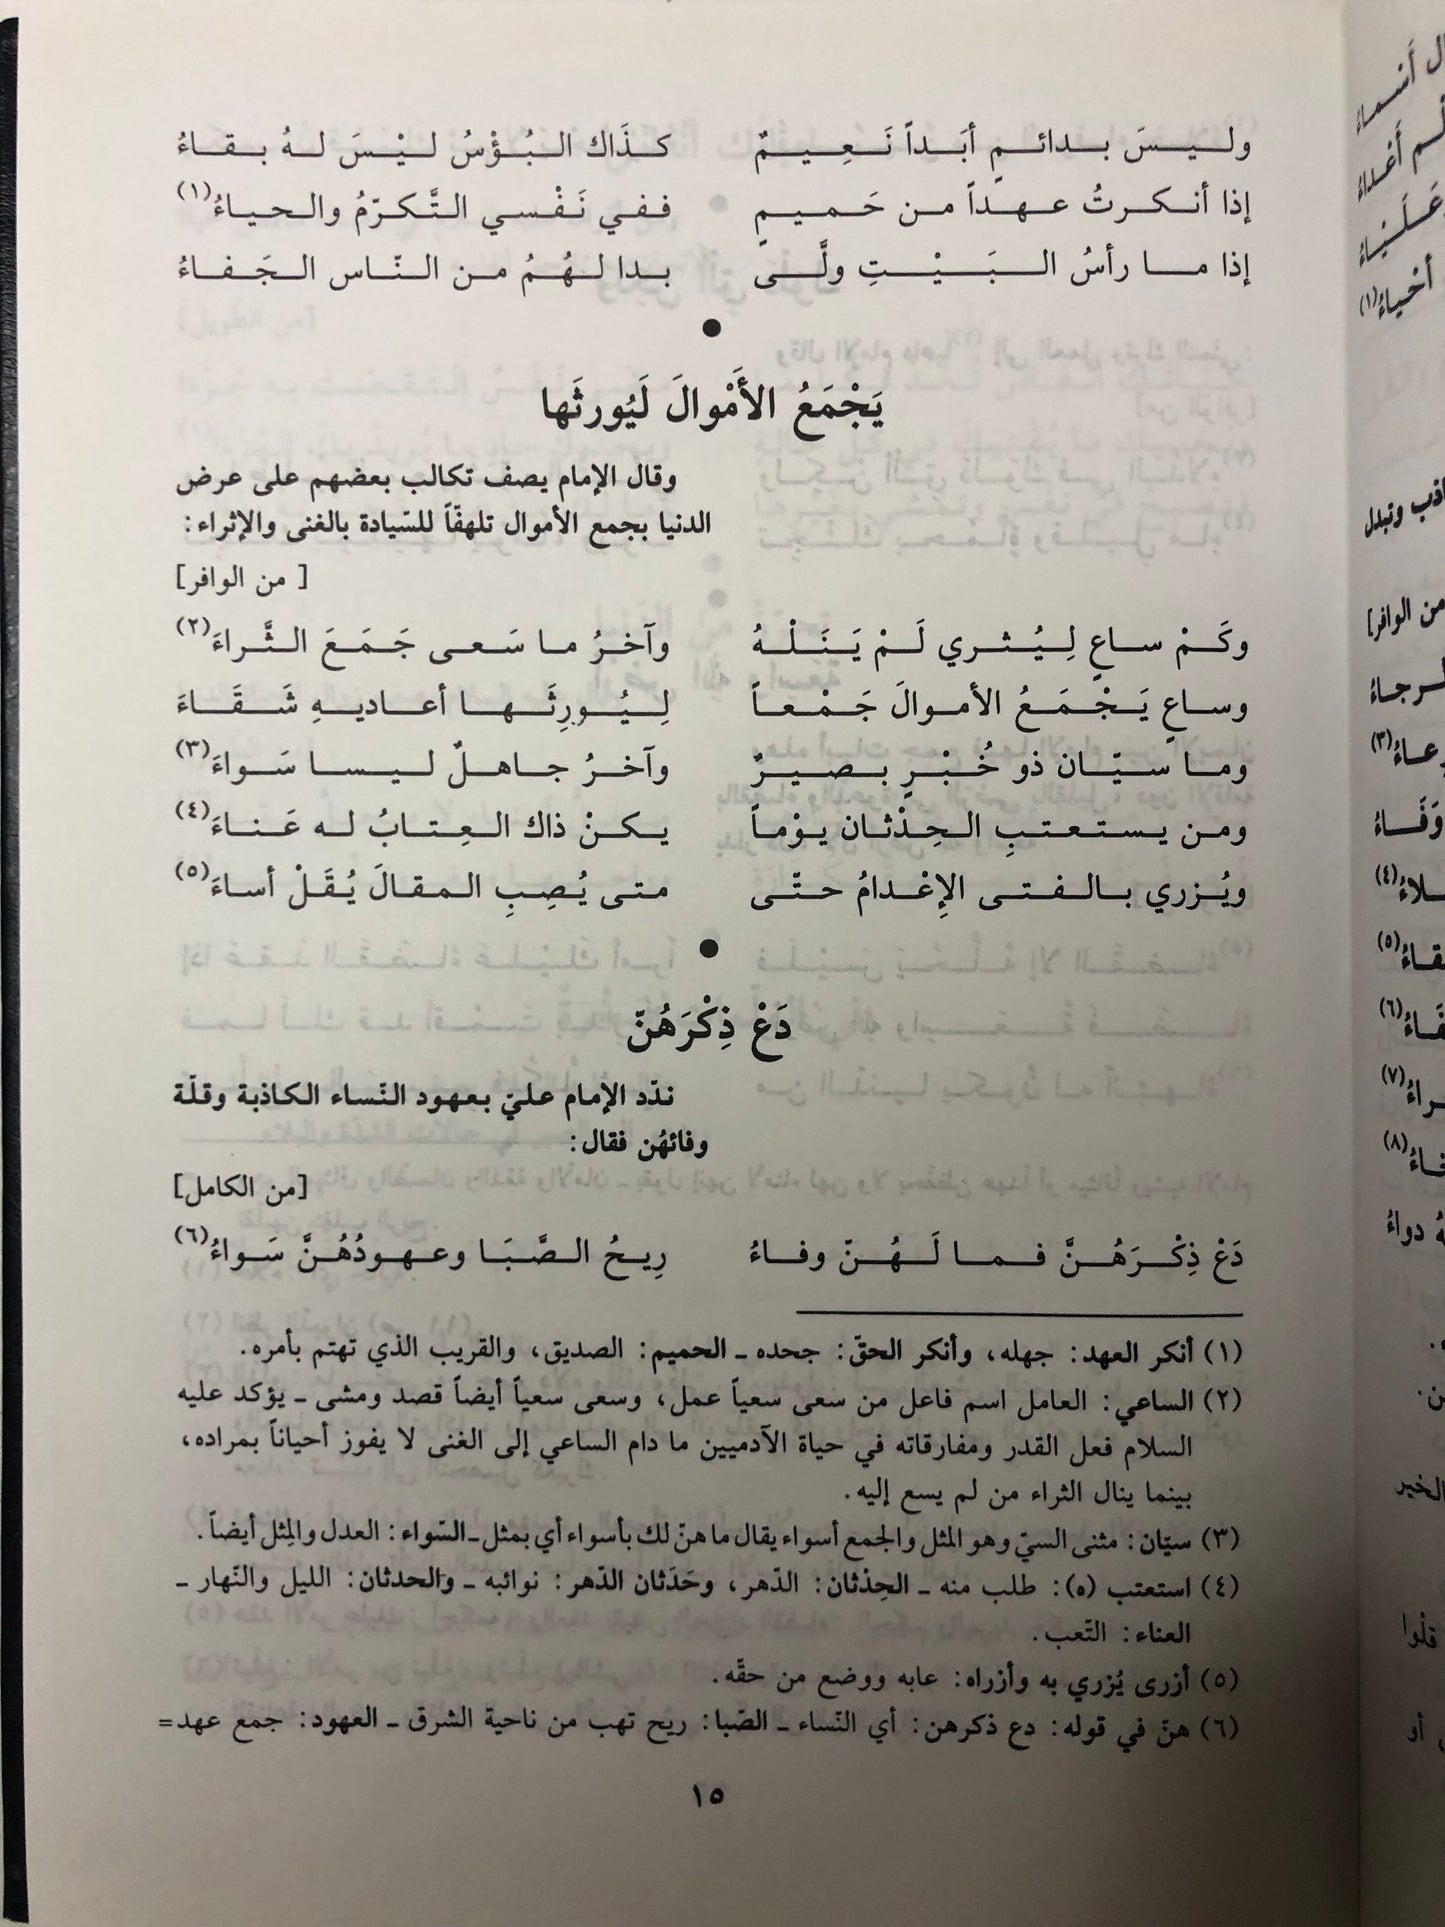 وليسَ بدائمٍ أبَداً نَعِيمٌ كذَاك البُؤْسُ ليْسَ لهُ بقاءُ
إذا أنكرتُ عهداً من حَميمٍ ففي نَفْسي التَّكرّمُ والحياءُ(١)
إذا ما رأسُ البَيْتِ ولَّى بدا لهُمُ من النّاس الجَفاءُ
●
يَجْمَعُ الأَمْوالَ لَيُورثَها
وقال الإمام يصف تكالب بعضهم على عرض
الدنيا بجمع الأموال تلهفّاً للسّيادة بالغنى والإثراء:
[ من الوافر]
وكَمْ ساعٍ لِيُثري لَمْ يَنَلْهُ وآخرُ ما سَعى جَمَعَ الثَّراءَ(٢)
وساعٍ يَجْمَعُ الأموالَ جَمْعاً لِيُورِثَها أعاديهِ شَقَاءَ
وما سيّان ذو خُبْرٍ بصيرٌ وآخرُ جاهلٌ ليسا سَواءَ(٣)
ومن يستعتبِ الحِدْثان يوْماً يكنْ ذاك العِتابُ له عَناءَ(٤)
ويُزري بالفتى الإِعْدامُ حتّى متى يُصِبِ المقالَ يُقَلْ أساءَ(٥)
●
دَعْ ذِكْرَهُنّ
ندّد الإمام عليّ بعهود النّساء الكاذبة وقلّة
وفائهُن فقال:
[من الكامل]
دَعْ ذِكْرَهُنَّ فما لَهُنّ وفاءُ رِيحُ الصَّبَا وعهودُهُنَّ سَواءُ(٦)
(١) أنكر العهد: جهله، وأنكر الحقّ: جحده ـ الحميم: الصديق، والقريب الذي تهتم بأمره.
(٢) الساعي: العامل اسم فاعل من سعى سعياً عمل، وسعى سعياً أيضاً قصد ومشى ـ يؤكد عليه
السلام فعل القدر ومفارقاته في حياة الآدميين ما دام الساعي إلى الغنى لا يفوز أحياناً بمراده،
بينما ينال الثراء من لم يسع إليه.
(٣) سيّان: مثنى السيّ وهو المثل والجمع أسواء يقال ما هنّ لك بأسواء أي بمثل ـ السّواء: العدل والمِثل أيضاً.
(٤) استعتب (ه): طلب منه ـ الحِدْثان: الدّهر، وحَدَثان الدّهر: نوائبه ـ والحدثان: الليل والنّهار ـ
العناء: التّعب.
(٥) أزرى يُزري به وأزراه: عابه ووضع من حقّه.
(٦) هنّ في قوله: دع ذكرهن: أي النّساء ـ الصّبا: ريح تهب من ناحية الشرق ـ العهود: جمع عهد=
١٥